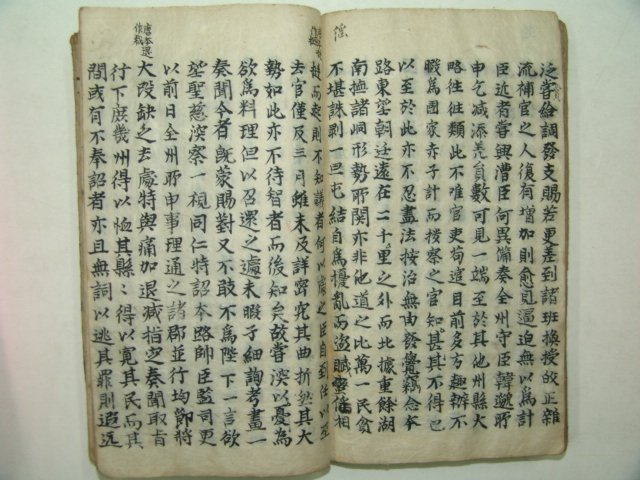 泛嘗給調發支賜若更差到諸班換授校正雜
流補官之人復有增加則愈見逼迫無以爲計
臣近者嘗興漕臣何異備奏全州守臣韓邈所
申乞减添差員數可見一端至於其他州縣大
略往往類此不唯官吏苟逭目前多方趣辦不
暇爲國家赤子計而按察之官知甚其不得已
以至於此亦不忍盡法按治無由發覺竊念本
路東望朝廷遠在二千里之外而北據重餘湖
南撫諸峒形勢所關亦非他道之比萬一民貧
不堪誅剥一旦屯結自爲擾亂而盜賊蠻徭相
徭
而起則不知議者何以處之臣自到任以至
去官僅及三月雖未及詳密究其曲折然其大
勢如此亦不待智者而後知矣故嘗深以憂爲
欲爲料理但以召還之遽未暇子細詢考畫一
奏聞今者旣蒙賜對又不敢不爲陛下一言欲
望聖慈深察一視同仁特詔本路帥臣監司更
以前日全州所申事理通之諸郡並行均節將
大段缺乏去處特與痛加退減指定奏聞取旨
行下庶幾州得以恤其縣〻得以寬其民而其
間或有不奉詔者亦且無詞以逃其罪則遐遠
唐本選